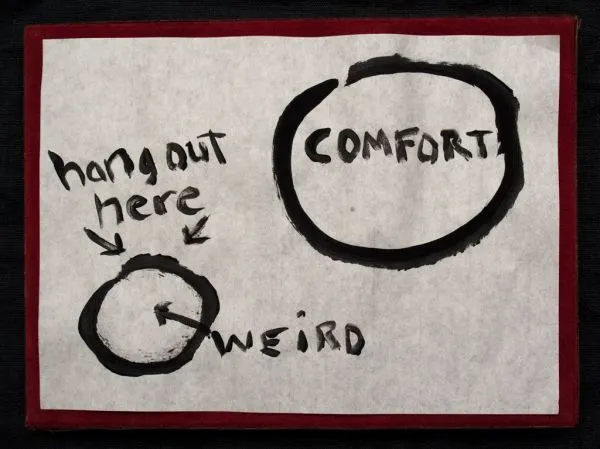 COMFORT
hang out
here
WEiRD